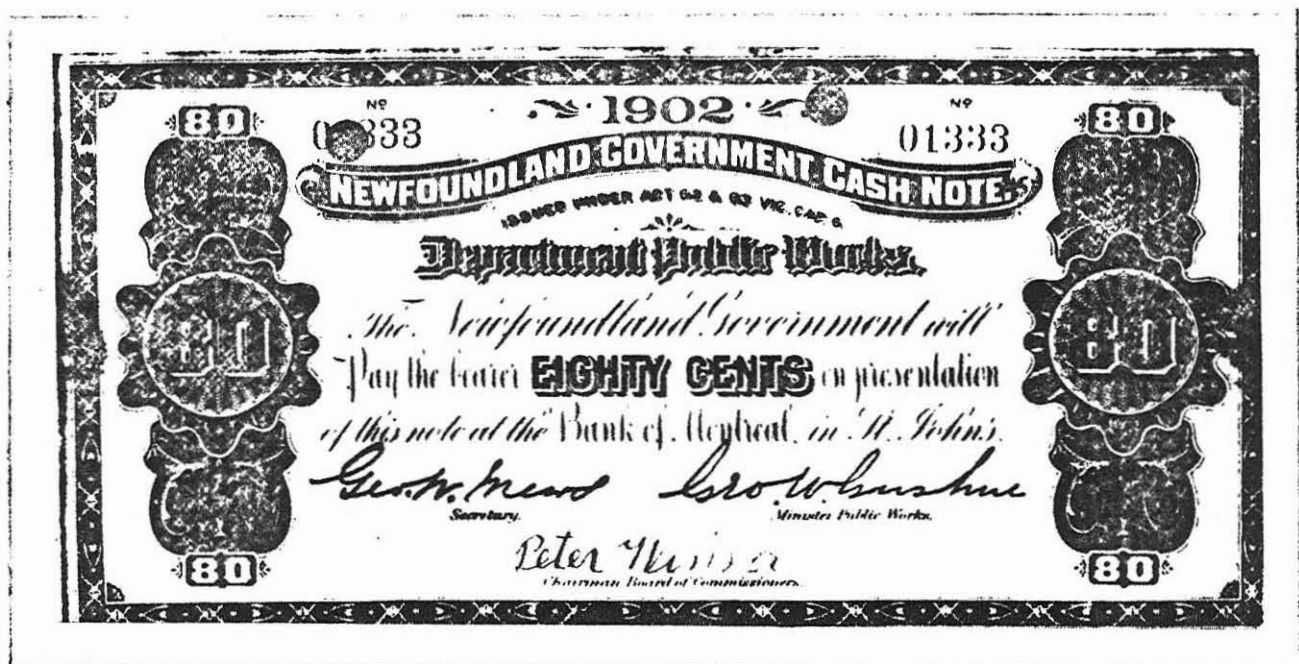 80 Nº · 1902 · Nº 80
0 333 01333
NEWFOUNDLAND GOVERNMENT CASH NOTE.
ISSUED UNDER ACT 62 & 63 VIC. CAP 6
Department Public Works.
The Newfoundland Government will
80 Pay the bearer EIGHTY CENTS on presentation 80
of this note at the Bank of Montreal, in St. John's.
Geo. W. Mews Geo. W. Gushue
Secretary. Minister Public Works.
Peter
80 Chairman Board of Commissioners. 80